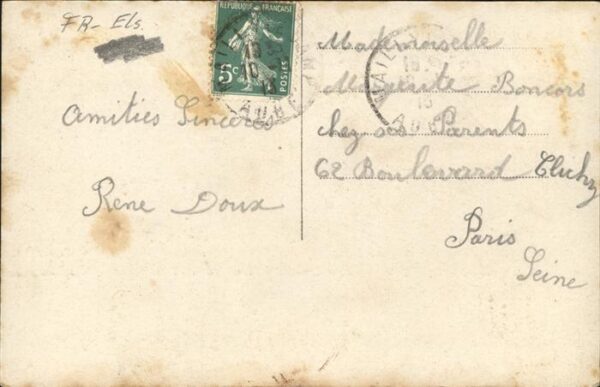 FR- Els.
REPUBLIQUE FRANÇAISE
5c
POSTES
Amitiés Sincères
Rene Doux
Mademoiselle
Marguerite Boncors
chez ses Parents
62 Boulevard Clichy
Paris
Seine